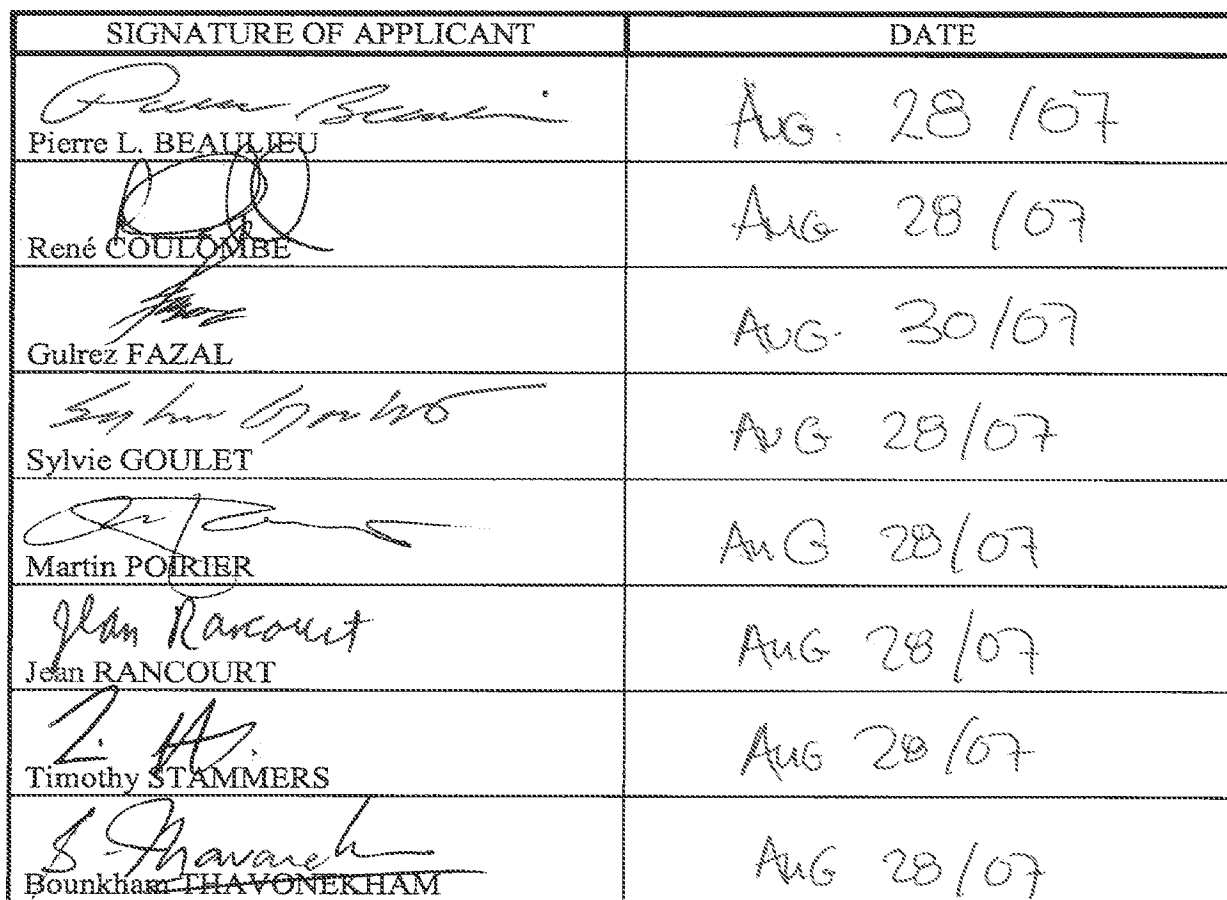 SIGNATURE OF APPLICANT DATE
Pierre L. BEAULIEU AUG. 28 /07
René COULOMBE AUG 28 /07
Gulrez FAZAL AUG. 30/07
Sylvie GOULET AUG 28/07
Martin POIRIER AUG 28/07
Jean Rancourt
Jean RANCOURT AUG 28/07
Timothy STAMMERS AUG 28/07
Bounkham THAVONEKHAM AUG 28/07